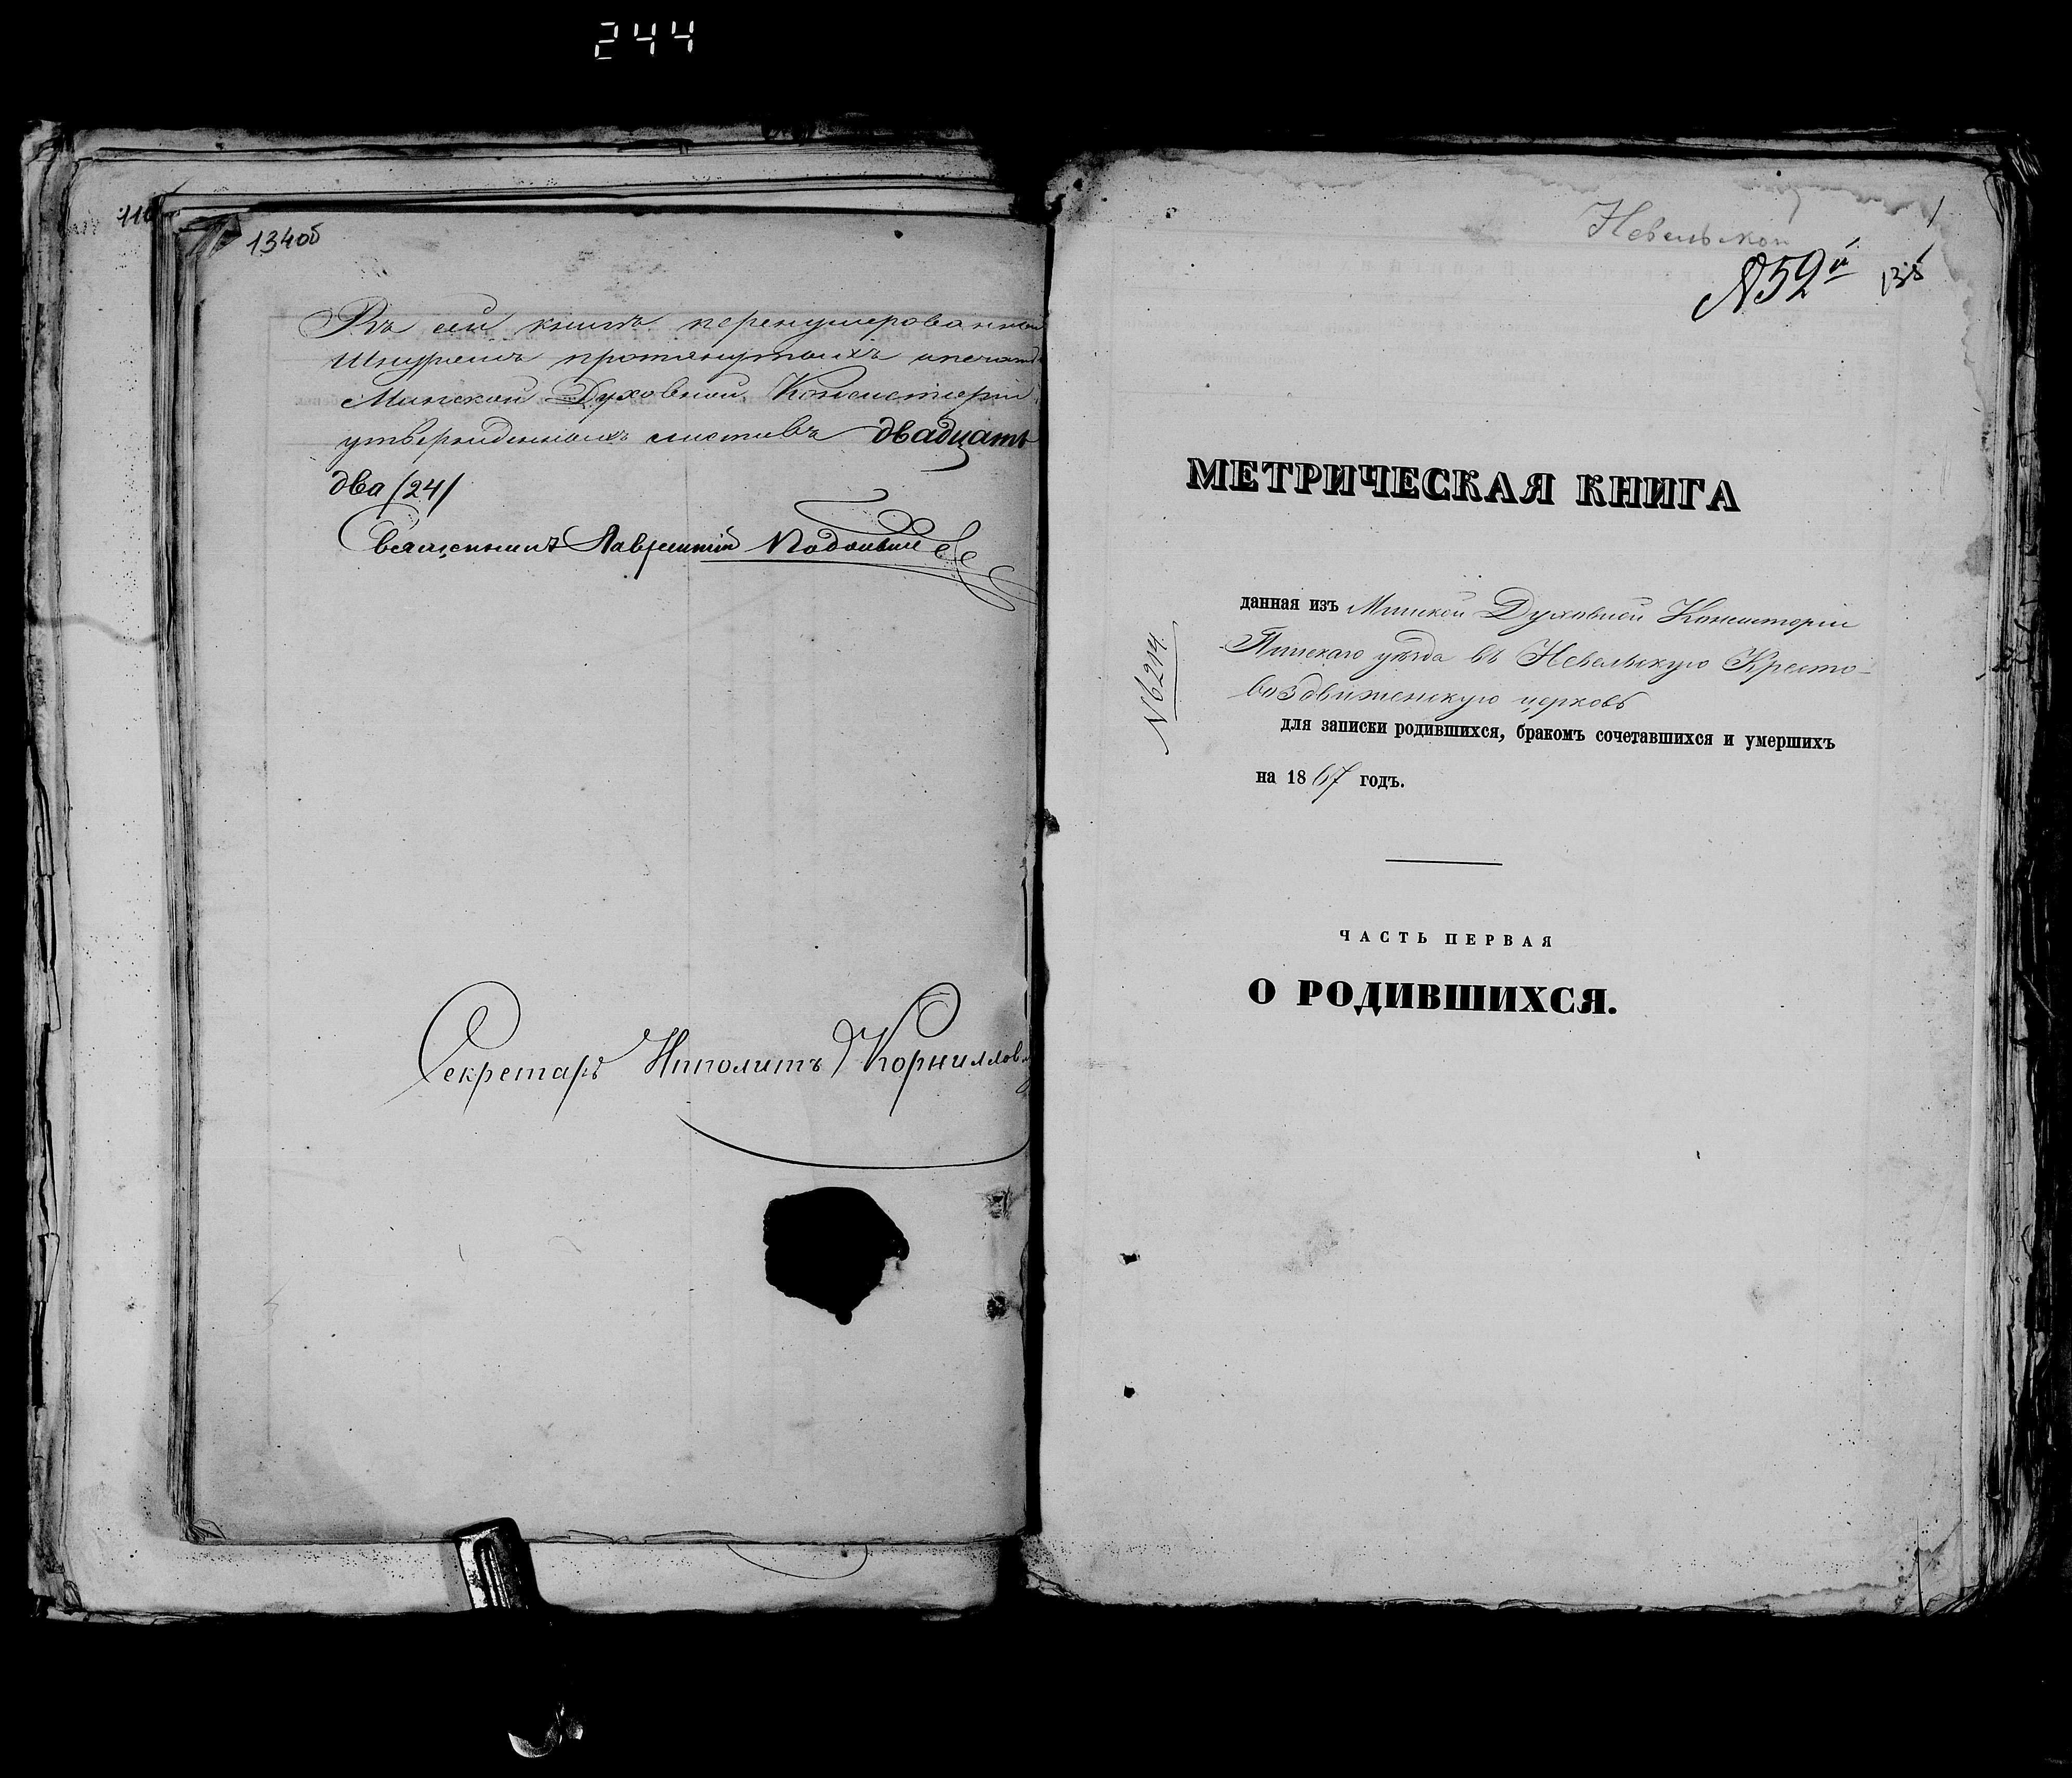 244
116
134об
Въ сей книгѣ перенумерованныхъ
шнуромъ протянутыхъ и печатью
Минской Духовной Консисторіи
утвержденныхъ листовъ двадцать
два /24/
Священникъ Лаврентій
Секретарь Ипполитъ Корнилло
Невельской
1
№ 52й
135
МЕТРИЧЕСКАЯ КНИГА
данная изъ Минской Духовной Консисторіи
Пинскаго уѣзда въ Невельскую Кресто-
воздвиженскую церковь
№ 6214
для записки родившихся, бракомъ сочетавшихся и умершихъ
на 1867 годъ.
ЧАСТЬ ПЕРВАЯ
О РОДИВШИХСЯ.